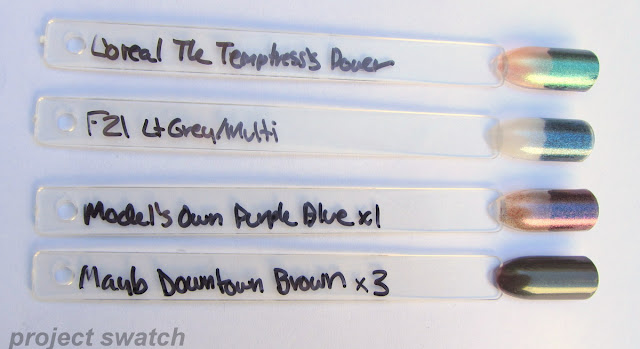 L'oreal The Temptress's Power
F21 Lt Grey/Multi
Model's Own Purple Blue x1
Mayb Downtown Brown x3
project swatch